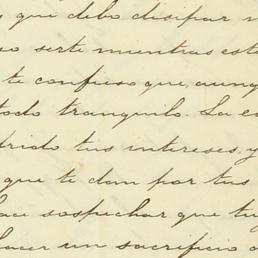 que debo disipar
serte mientras est
te confieso que, aunq
todo tranquilo. La c
rido tus intereses, y
que te dan por tus
hace sospechar que tu
hacer un sacrificio